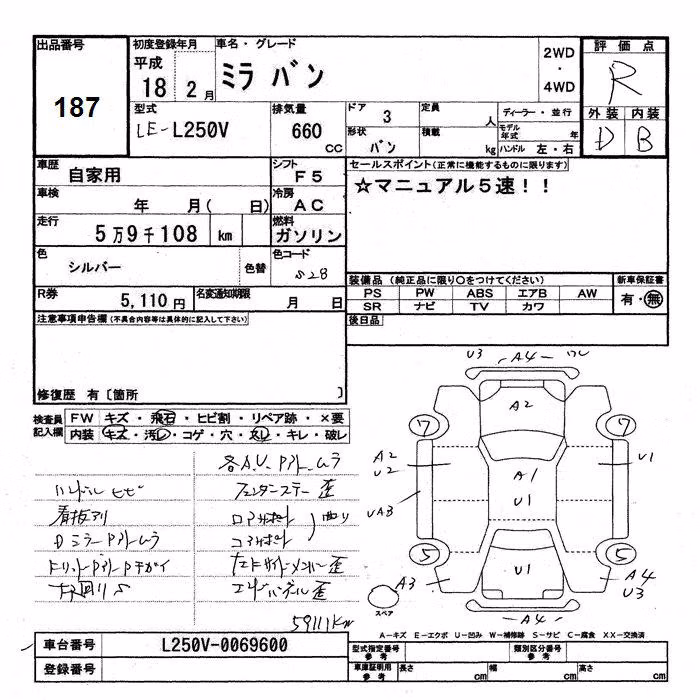 出品番号
187
初度登録年月
平成
18 2月
車名・グレード
ミラ バン
2WD
・
4WD
評価点
R
外装 内装
D B
型式
LE-L250V
排気量
660
CC
ドア
3
定員
人
形状
バン
積載
kg
ディーラー・並行
モデル年式 年
ハンドル 左・右
車歴
自家用
シフト
F5
車検
年 月( 日)
冷房
AC
走行
5万9千108 km
燃料
ガソリン
色
シルバー
色替
色コード
S28
R券
5,110円
名変通知期限
月 日
セールスポイント(正常に機能するものに限ります)
☆マニュアル5速!!
装備品(純正品に限り○をつけてください)
PS PW ABS エアB AW
SR ナビ TV カワ
新車保証書
有・無
後日品
注意事項申告欄(不具合内容等は具体的に記入して下さい)
修復歴 有〔箇所 〕
検査員
記入欄
FW キズ・飛石・ヒビ割・リペア跡・×要
内装 キズ・汚レ・コゲ・穴・スレ・キレ・破レ
各A.U. アト ムラ
ハンドル ヒビ
フェンダーステー 歪
看板アリ
ロアサポート
曲り
Dミラー アト ムラ
コアサポート
エンドパネル歪
59111Km
U3 A4
A2
7 7
A2
U2
U1
A1
U1
UA3
5 5
U1
A3
A4
U3
A4
スペア
A-キズ E-エクボ U-凹み W-補修跡 S-サビ C-腐食 XX-交換済
車台番号
L250V-0069600
登録番号
型式指定番号
参考
類別区分番号
参考
車庫証明用
参考
長さ cm 幅 cm 高さ cm